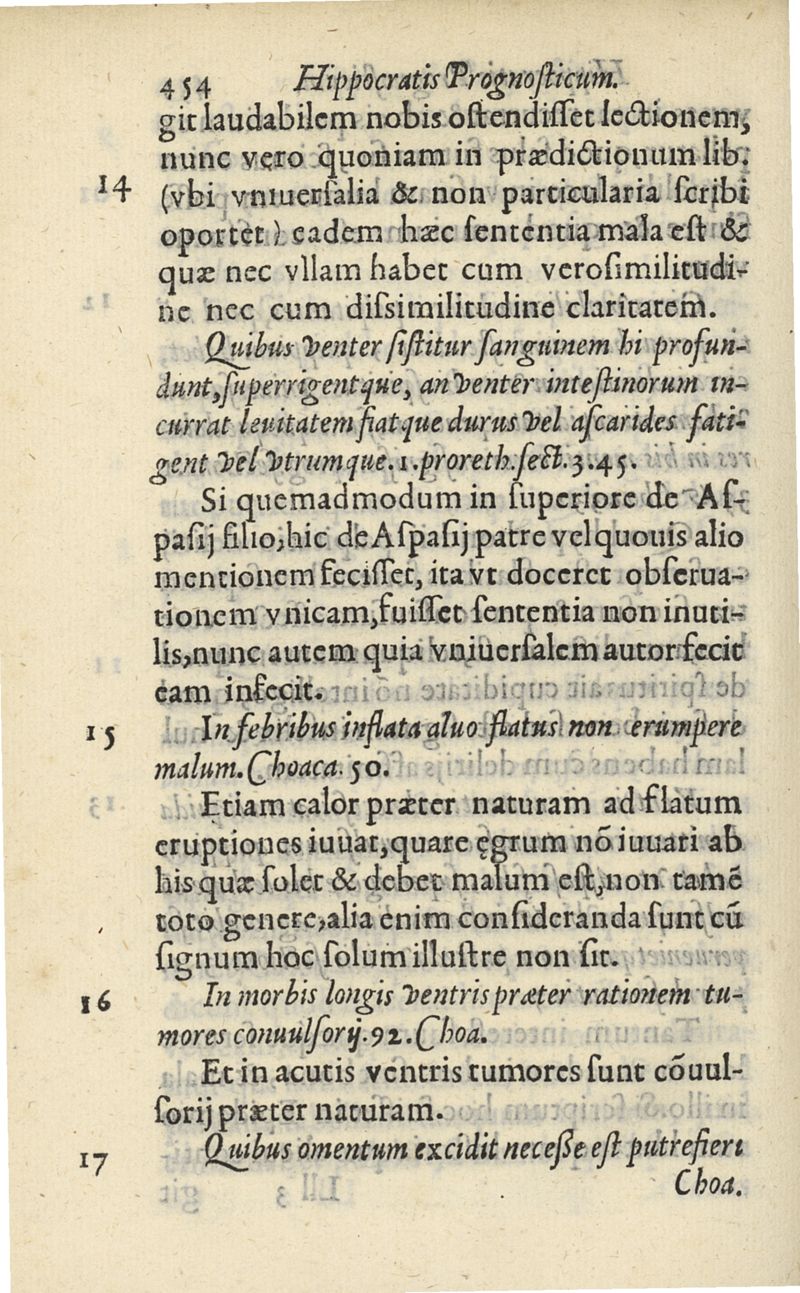 454 Hippocratis Prognoſticum.
git laudabilem nobis oſtendiſſet lectionem,
nunc vero quoniam in prædictionum lib.
14 (vbi vniuerſalia & non particularia ſcribi
oportet) eadem hæc ſententia mala eſt &
quæ nec vllam habet cum veroſimilitudi-
ne nec cum diſsimilitudine claritatem.
Quibus venter ſiſtitur ſanguinem hi profun-
dunt, ſuperrigentque, an venter inteſtinorum in-
currat leuitatem fiatque durus vel aſcarides fati-
gent vel vtrumque. 1. proreth. ſect. 3. 45.
Si quemadmodum in ſuperiore de Aſ-
paſij filio, hic de Aſpaſij patre vel quouis alio
mentionem feciſſet, ita vt doceret obſerua-
tionem vnicam, fuiſſet ſententia non inuti-
lis, nunc autem quia vniuerſalem autor fecit
eam infecit.
15 In febribus inflata aluo flatus non erumpere
malum. Choaca. 50.
Etiam calor præter naturam ad flatum
eruptiones iuuat, quare ęgrum nō iuuari ab
his quæ ſolet & debet malum eſt, non tamē
toto genere, alia enim conſideranda ſunt cū
ſignum hoc ſolum illuſtre non ſit.
16 In morbis longis ventris præter rationem tu-
mores conuulſorij. 92. Choa.
Et in acutis ventris tumores ſunt cōuul-
ſorij præter naturam.
17 Quibus omentum excidit neceſſe eſt putrefieri
Choa.